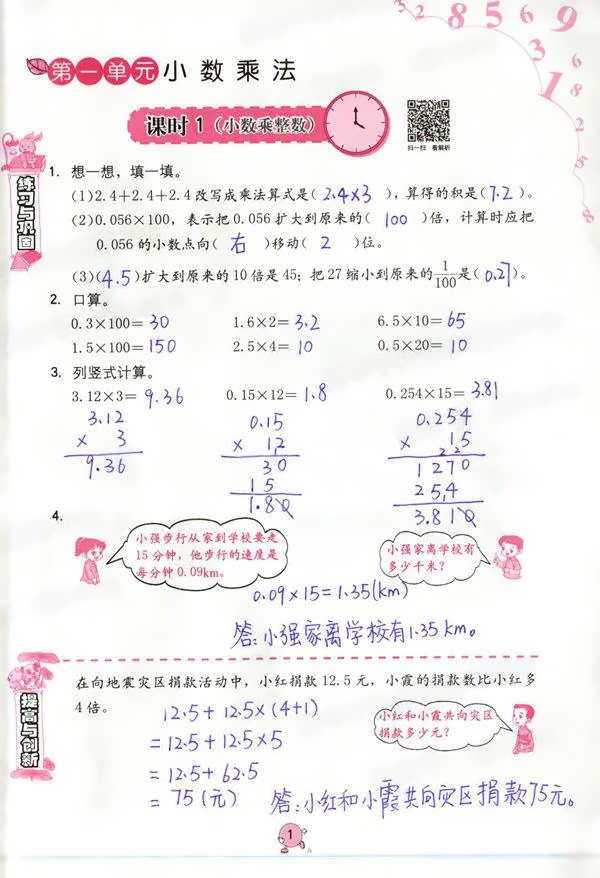 3 2 8 5 6 9
3
1
6
8
2
5
8
5
3
2
第一单元 小数乘法
课时1（小数乘整数）
扫一扫 看解析
练习与巩固
1. 想一想，填一填。
(1)2.4+2.4+2.4改写成乘法算式是( 2.4×3 )，算得的积是(7.2)。
(2)0.056×100，表示把0.056扩大到原来的( 100 )倍，计算时应把
0.056的小数点向( 右 )移动( 2 )位。
(3)(4.5)扩大到原来的10倍是45；把27缩小到原来的1/100是(0.27)。
2. 口算。
0.3×100=30 1.6×2=3.2 6.5×10=65
1.5×100=150 2.5×4=10 0.5×20=10
3. 列竖式计算。
3.12×3=9.36 0.15×12=1.8 0.254×15=3.81
3.12 0.15 0.254
× 3 × 12 × 15
2 2
9.36 30 1270
15 254
1.80 3.810
4.
小强步行从家到学校要走
15分钟，他步行的速度是
每分钟0.09km。
小强家离学校有
多少千米？
0.09×15=1.35(km)
答:小强家离学校有1.35km。
提高与创新
在向地震灾区捐款活动中，小红捐款12.5元，小霞的捐款数比小红多
4倍。
小红和小霞共向灾区
捐款多少元？
12.5+12.5×(4+1)
=12.5+12.5×5
=12.5+62.5
=75(元)
答:小红和小霞共向灾区捐款75元。
1